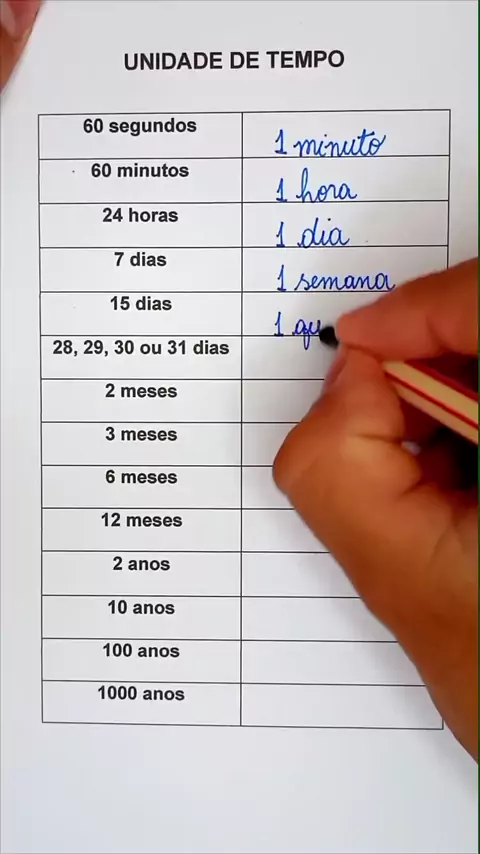 UNIDADE DE TEMPO
60 segundos 1 minuto
60 minutos 1 hora
24 horas 1 dia
7 dias 1 semana
15 dias 1 qu
28, 29, 30 ou 31 dias
2 meses
3 meses
6 meses
12 meses
2 anos
10 anos
100 anos
1000 anos